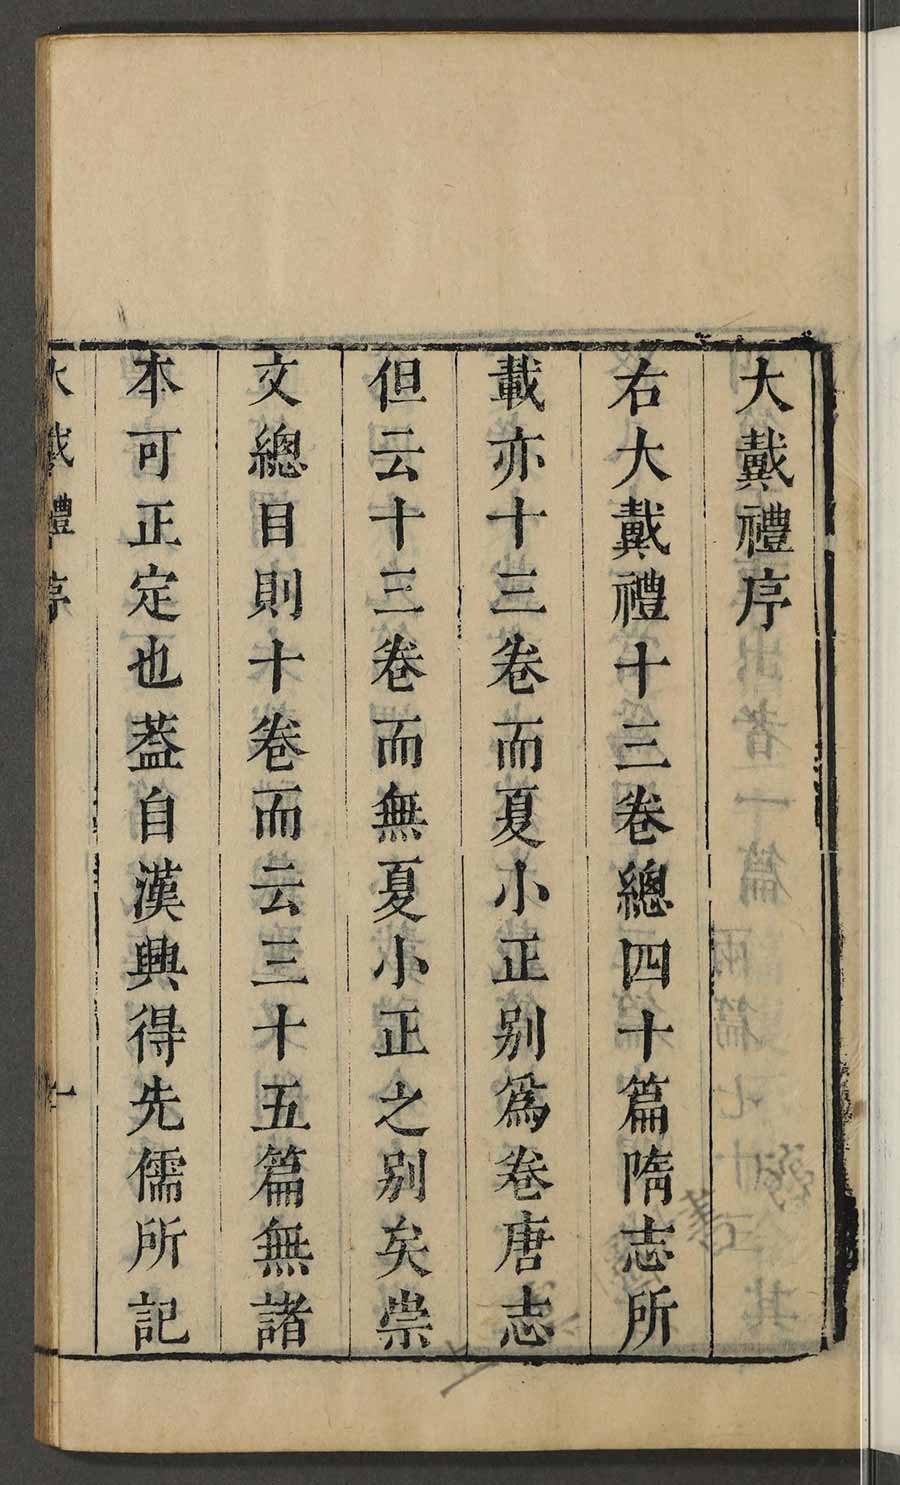 大戴禮序
右大戴禮十三卷總四十篇隋志所
載亦十三卷而夏小正别爲卷唐志
但云十三卷而無夏小正之别矣崇
文總目則十卷而云三十五篇無諸
本可正定也葢自漢興得先儒所記
大戴禮序 一